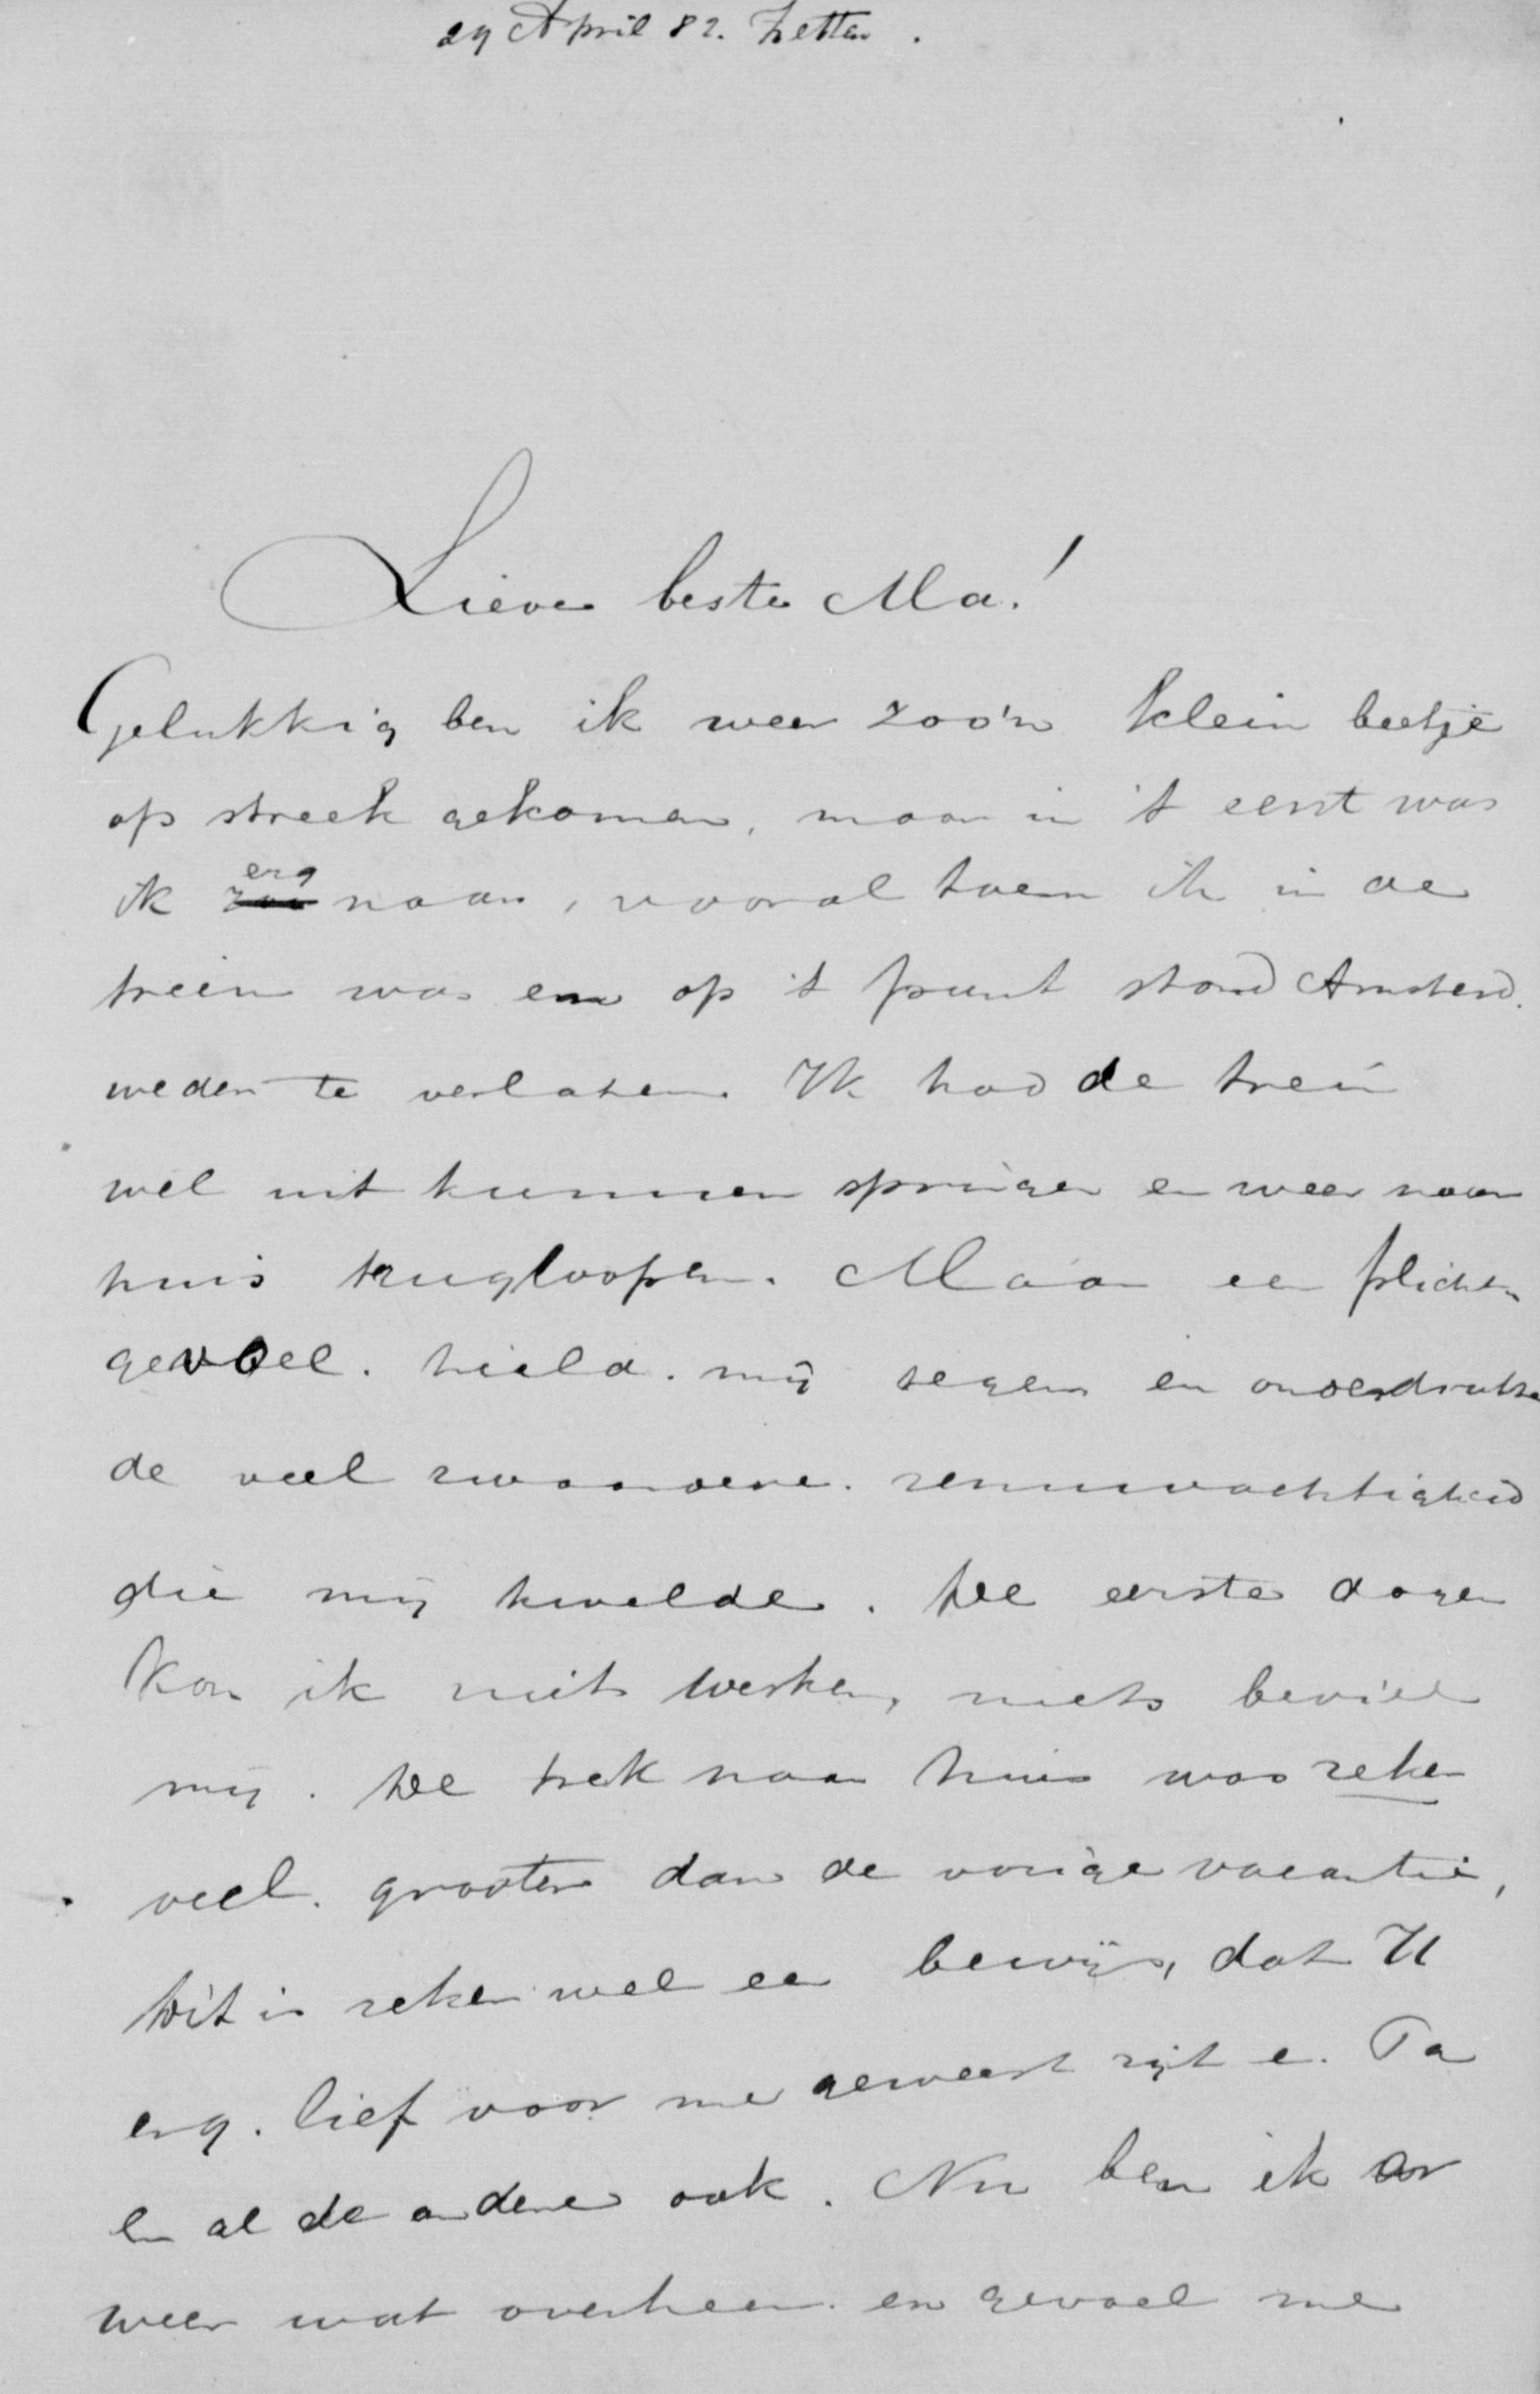 29 April 82. Zetten.
Lieve beste Ma!
Gelukkig ben ik weer zoo'n klein beetje
op streek gekomen, maar in 't eerst was
ik zoo erg naar, vooral toen ik in de
trein was en op 't punt stond Amsterd.
weder te verlaten. Ik had de trein
wel uit kunnen springen en weer naar
huis terugloopen. Maar een plichts
gevoel. hield. mij tegen en onderdrukte
de veel zwaardere. zenuwachtigheid
die mij kwelde. De eerste dagen
kon ik niet werken, niets beviel
mij. De trek naar huis was zeker
veel. grooter dan de vorige vacantie,
Dit is zeker wel een bewijs, dat U
erg. lief voor me geweest zijt e. Pa
en al de andere ook. Nu ben ik er
weer wat overheen. en gevoel me